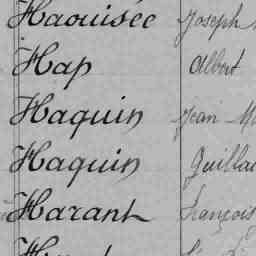 Haouisée Joseph
Hap Albert
Haquin Jean M
Haquin Guillau
Harant François